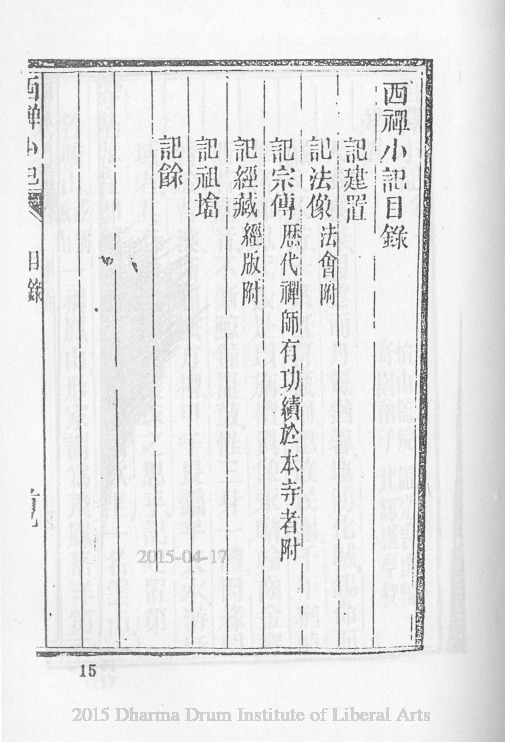 西禪小記目錄
記建置
記法像 法會附
記宗傳 歷代禪師有功績於本寺者附
記經藏 經版附
記祖塔
記餘
西禪小記 目錄
15
2015-04-17
2015 Dharma Drum Institute of Liberal Arts